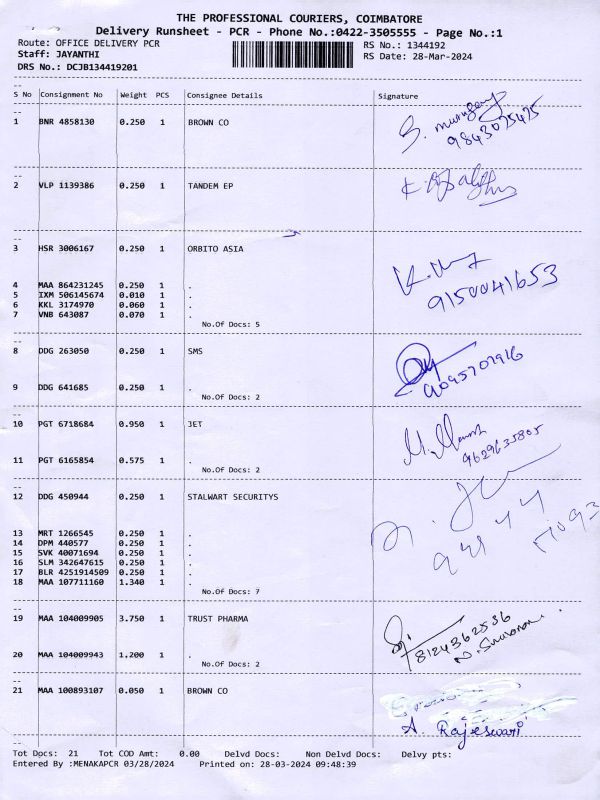 THE PROFESSIONAL COURIERS, COIMBATORE
Delivery Runsheet - PCR - Phone No.:0422-3505555 - Page No.:1
Route: OFFICE DELIVERY PCR RS No.: 1344192
Staff: JAYANTHI RS Date: 28-Mar-2024
DRS No.: DCJB134419201
S No Consignment No Weight PCS Consignee Details Signature
1 BNR 4858130 0.250 1 BROWN CO
S. murugan
9843075475
2 VLP 1139386 0.250 1 TANDEM EP
3 HSR 3006167 0.250 1 ORBITO ASIA
4 MAA 864231245 0.250 1 .
5 IXM 506145674 0.010 1 .
6 KKL 3174970 0.060 1 .
7 VNB 643087 0.070 1 .
9150041653
No.Of Docs: 5
8 DDG 263050 0.250 1 SMS
9095707916
9 DDG 641685 0.250 1 .
No.Of Docs: 2
10 PGT 6718684 0.950 1 JET
9629635805
11 PGT 6165854 0.575 1 .
No.Of Docs: 2
12 DDG 450944 0.250 1 STALWART SECURITYS
13 MRT 1266545 0.250 1 .
14 DPM 440577 0.250 1 .
15 SVK 40071694 0.250 1 .
16 SLM 342647615 0.250 1 .
17 BLR 4251914509 0.250 1 .
18 MAA 107711160 1.340 1 .
No.Of Docs: 7
19 MAA 104009905 3.750 1 TRUST PHARMA
8124362536
20 MAA 104009943 1.200 1 .
No.Of Docs: 2
21 MAA 100893107 0.050 1 BROWN CO
A. Rajeswari
Tot Docs: 21 Tot COD Amt: 0.00 Delvd Docs: Non Delvd Docs: Delvy pts:
Entered By :MENAKAPCR 03/28/2024 Printed on: 28-03-2024 09:48:39